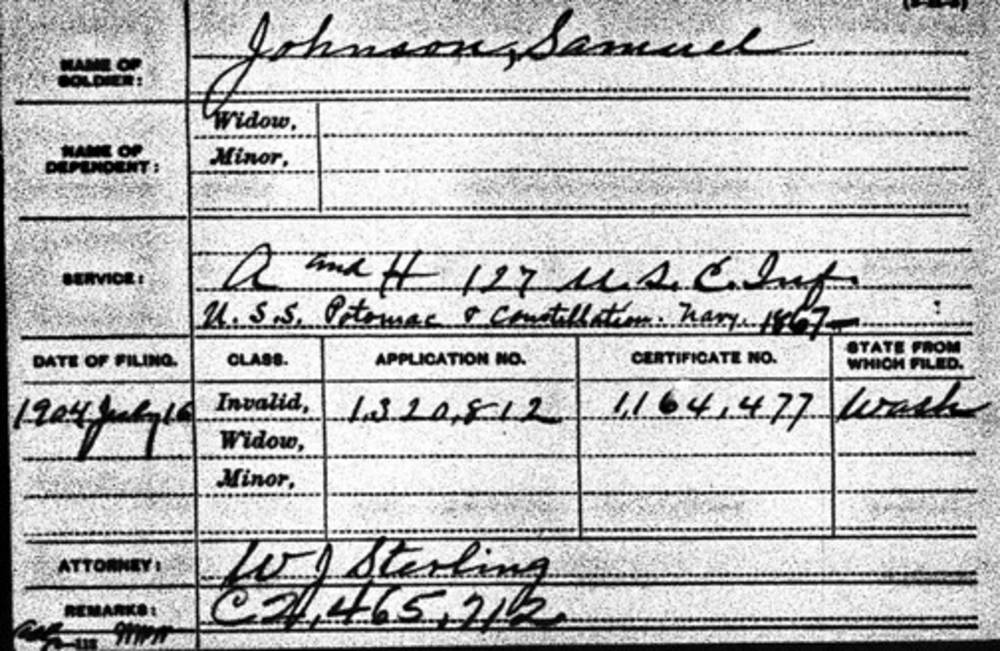 NAME OF SOLDIER: Johnson, Samuel
NAME OF DEPENDENT: Widow,
Minor,
SERVICE: A and H 127 U.S.C. Inf.
U.S.S. Potomac & Constellation. Navy. 1867
DATE OF FILING. CLASS. APPLICATION NO. CERTIFICATE NO. STATE FROM WHICH FILED.
1904 July 16 Invalid, 1,320,812 1,164,477 Wash
Widow,
Minor,
ATTORNEY: W J Sterling
REMARKS: C 2,465,712